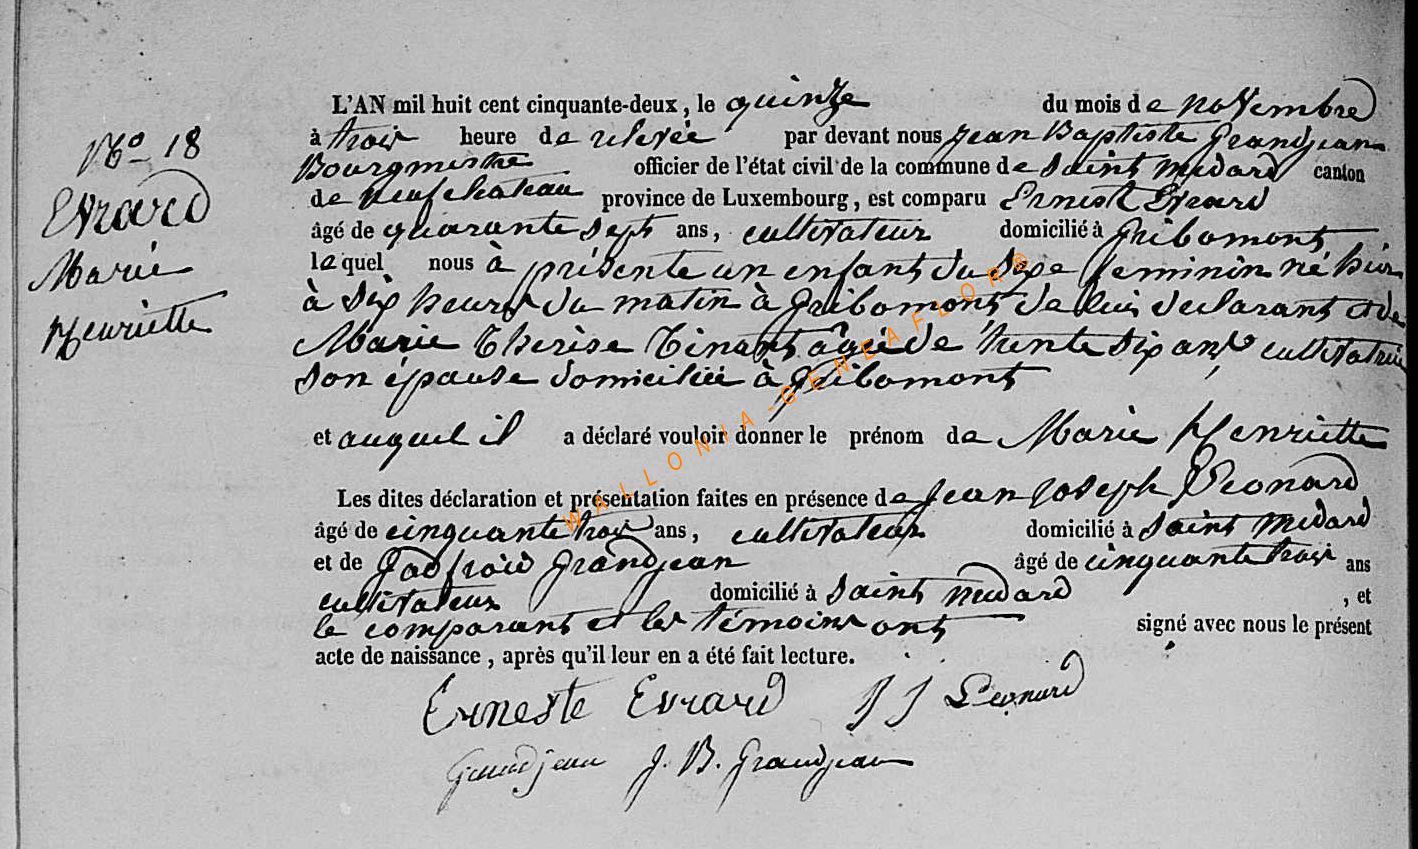 L'AN mil huit cent cinquante-deux, le quinze du mois de novembre
No 18
à trois heure de relevée par devant nous Jean Baptiste Grandjean
Bourgmestre officier de l'état civil de la commune de Saint Medard canton
Evrard
de Neufchateau province de Luxembourg, est comparu Ernest Evrard
âgé de quarante sept ans, cultivateur domicilié à Gribomont
Marie
lequel nous à présenté un enfant du sexe feminin né hier
à six heures du matin à Gribomont de lui déclarant et de
Henriette
Marie Thérèse Tinant âgée de trente six ans, cultivatrice
son épouse domiciliée à Gribomont
et auquel il a déclaré vouloir donner le prénom de Marie Henriette
Les dites déclaration et présentation faites en présence de Jean Joseph Léonard
âgé de cinquante trois ans, cultivateur domicilié à Saint Medard
et de Godfroid Grandjean âgé de cinquante trois ans
cultivateur domicilié à Saint Medard, et
le comparant et les témoins ont signé avec nous le présent
acte de naissance, après qu'il leur en a été fait lecture.
Erneste Evrard J J Leonard
Grandjean J. B. Grandjean
WALLONIA-GENEAFLOR®